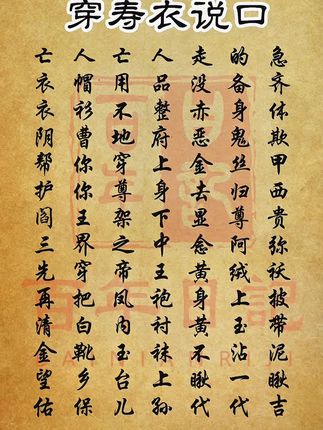 穿寿衣说口
亡人亡人走的急
衣帽用品没备齐
衣衫不整赤身体
阴曹地府恶鬼欺
帮你穿上金丝甲
护你尊身去归西
阎王架下显尊贵
三界之中念阿弥
先穿帝王黄绒袄
再把凤袍身上披
清白内衬黄玉带
金靴玉袜不沾泥
望乡台上瞅一瞅
佑保儿孙代代吉
百年日記